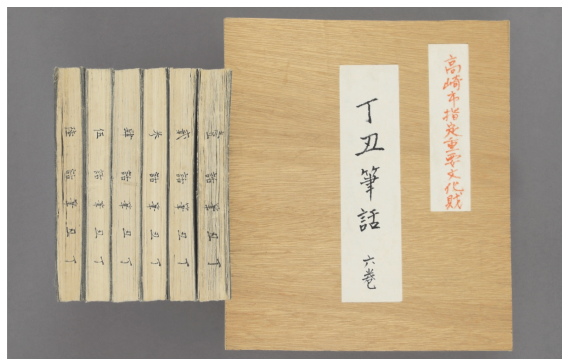 高崎市指定重要文化財
丁丑筆話 六巻
丁丑筆話 壹
丁丑筆話 貳
丁丑筆話 参
丁丑筆話 肆
丁丑筆話 伍
丁丑筆話 陸